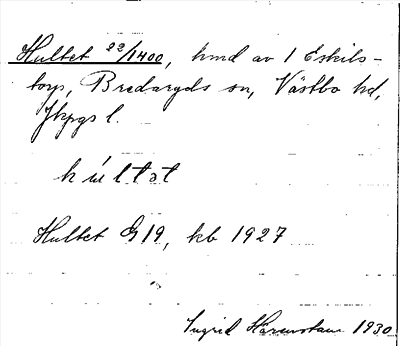 Hultet 22/1400, hmd av 1 Eskils-
torp, Bredaryds sn, Västbo hd,
Jkpgs l.
húltət
Hultet G19, kb 1927
Ingrid Härenstam 1930